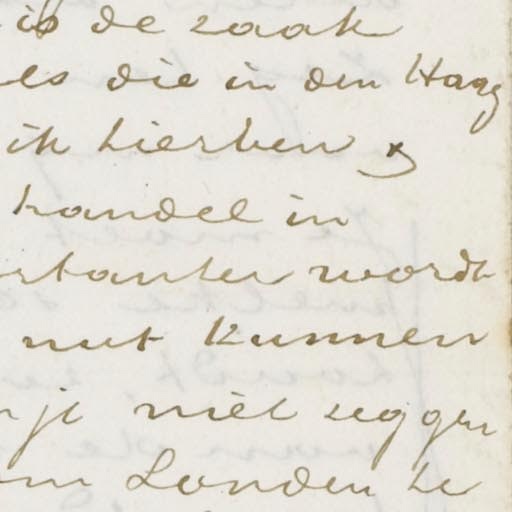 is de zaak
es die in den Haag
ik hier ben &
handel in
rtanter wordt
nut kunnen
je niet zeggen
om Londen te